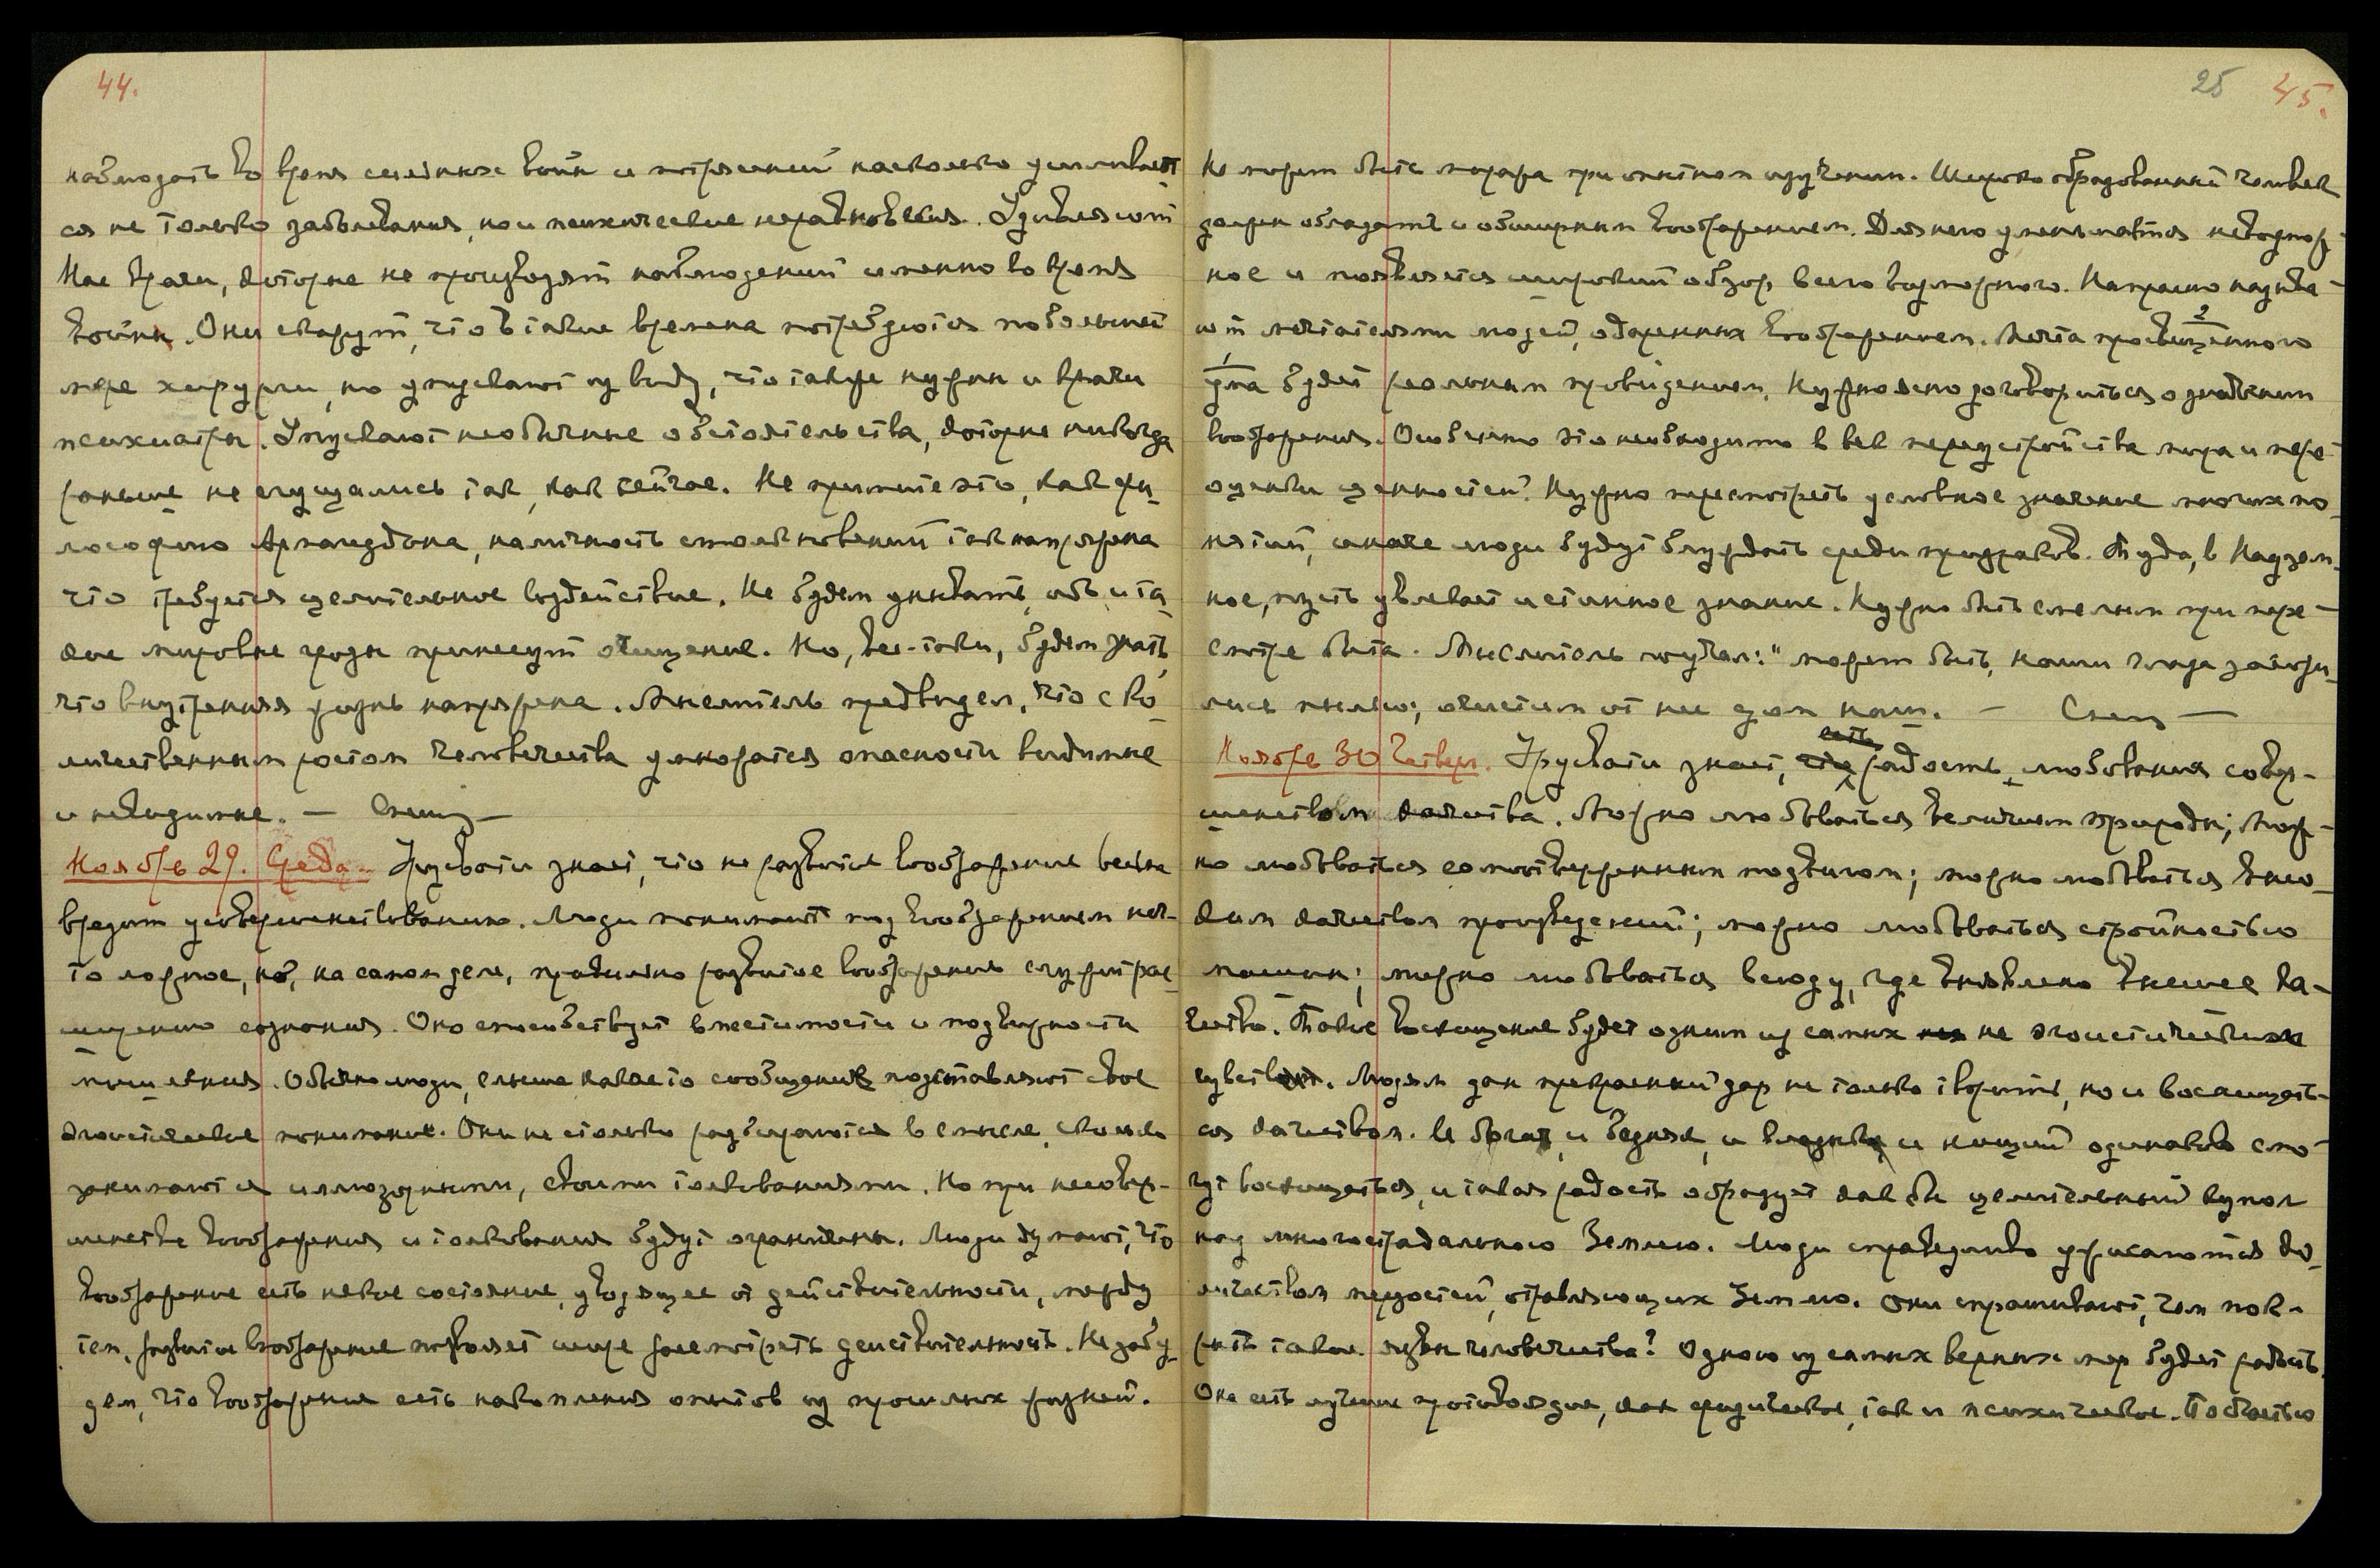 44.
наблюдать во время сильных войн и потрясений насколько усиливает
ся не только заболевания, но и психические неравновесия. Удивляют
Нас врачи, которые не производят наблюдений именно во время
войны. Они скажут, что в такие времена потребуются по большей
мере хирурги, но упускают из виду, что также нужны и врачи
психиатры. Упускают необычные обстоятельства, которые никогда
раньше не сгущались так, как сейчас. Не примите это, как фи-
лософию Армагеддона, наличность столкновений так напряжена
что требуется целительное воздействие. Не будем унывать, ибо и та-
кие мировые грозы принесут очищение. Но, все-таки, будем знать,
что внутренняя жизнь напряжена. Мыслитель предвидел, что с ко-
личественным ростом человечества умножатся опасности видимые
и невидимые. — Спешу —
Ноябрь 29. Среда. Урусвати знает, что не развитие воображения весьма
вредит усовершенствованию. Люди понимают под воображением неч-
то ложное, но, на самом деле, правильно развитое воображение служит рас-
ширению сознания. Оно способствует вместимости и подвижности
мышления. Обычно люди, слыша какое то сообщение подставляют свое
эгоистическое понимание. Они не столько разбираются в смысле, сколько
занимаются иллюзорными, своими толкованиями. Но при несовер-
шенстве воображения и толкования будут ограничены. Люди думают, что
воображение есть некое состояние, уводящее от действительности, между
тем, развитое воображение позволяет шире рассмотреть действительность. Не забу-
дем, что воображение есть накопления опытов из прошлых жизней.
25 45.
Но может быть пожара при опытном изучении. Широко образованный человек
должен обладать и обширным воображением. Для него уменьшается невозмож-
ное и появляется широкий обзор всего возможного. Напрасно называ-
ют мечтателями людей, одаренных воображением. Мечта просвещенного 2
1 ума будет реальным провидением. Нужно ясно договориться о значении
воображения. Особенно это необходимо в век переустройства мира и пере-
оценки ценностей. Нужно пересмотреть условное значение многих по-
нятий, иначе люди будут блуждать среди призраков. Туда, в Надзем-
ное, пусть увлекает истинное знание. Нужно быть смелым при пере-
смотре быта. Мыслитель поучал: "может быть, наши глаза засори-
лись пылью; очистим от нее дом наш. — Спешу —
Ноябрь 30 Четверг. Урусвати знает, что есть радость любования совер-
шенством качества. Можно любоваться величием природы; мож-
но любоваться самоотверженным подвигом; можно любоваться высо-
ким качеством произведений; можно любоваться стройностью
машины; можно любоваться всюду, где выявлено высшее ка-
чество. Такое восхищение будет одним из самых не эгоистических
чувств. Людям дан прекрасный дар не только творить, но и восхищать-
ся качеством. И богат, и бедняк, и владыка, и нищий одинаково смо-
гут восхищаться, и такая радость образует как бы целительный купол
над многострадальною Землею. Люди справедливо ужасаются ко-
личеством мерзостей, отравляющих Землю. Они спрашивают, чем пок-
рыть такие язвы человечества? Одною из самых верных мер будет радость.
Она есть лучшее противоядие, как физическое, так и психическое. По счастью